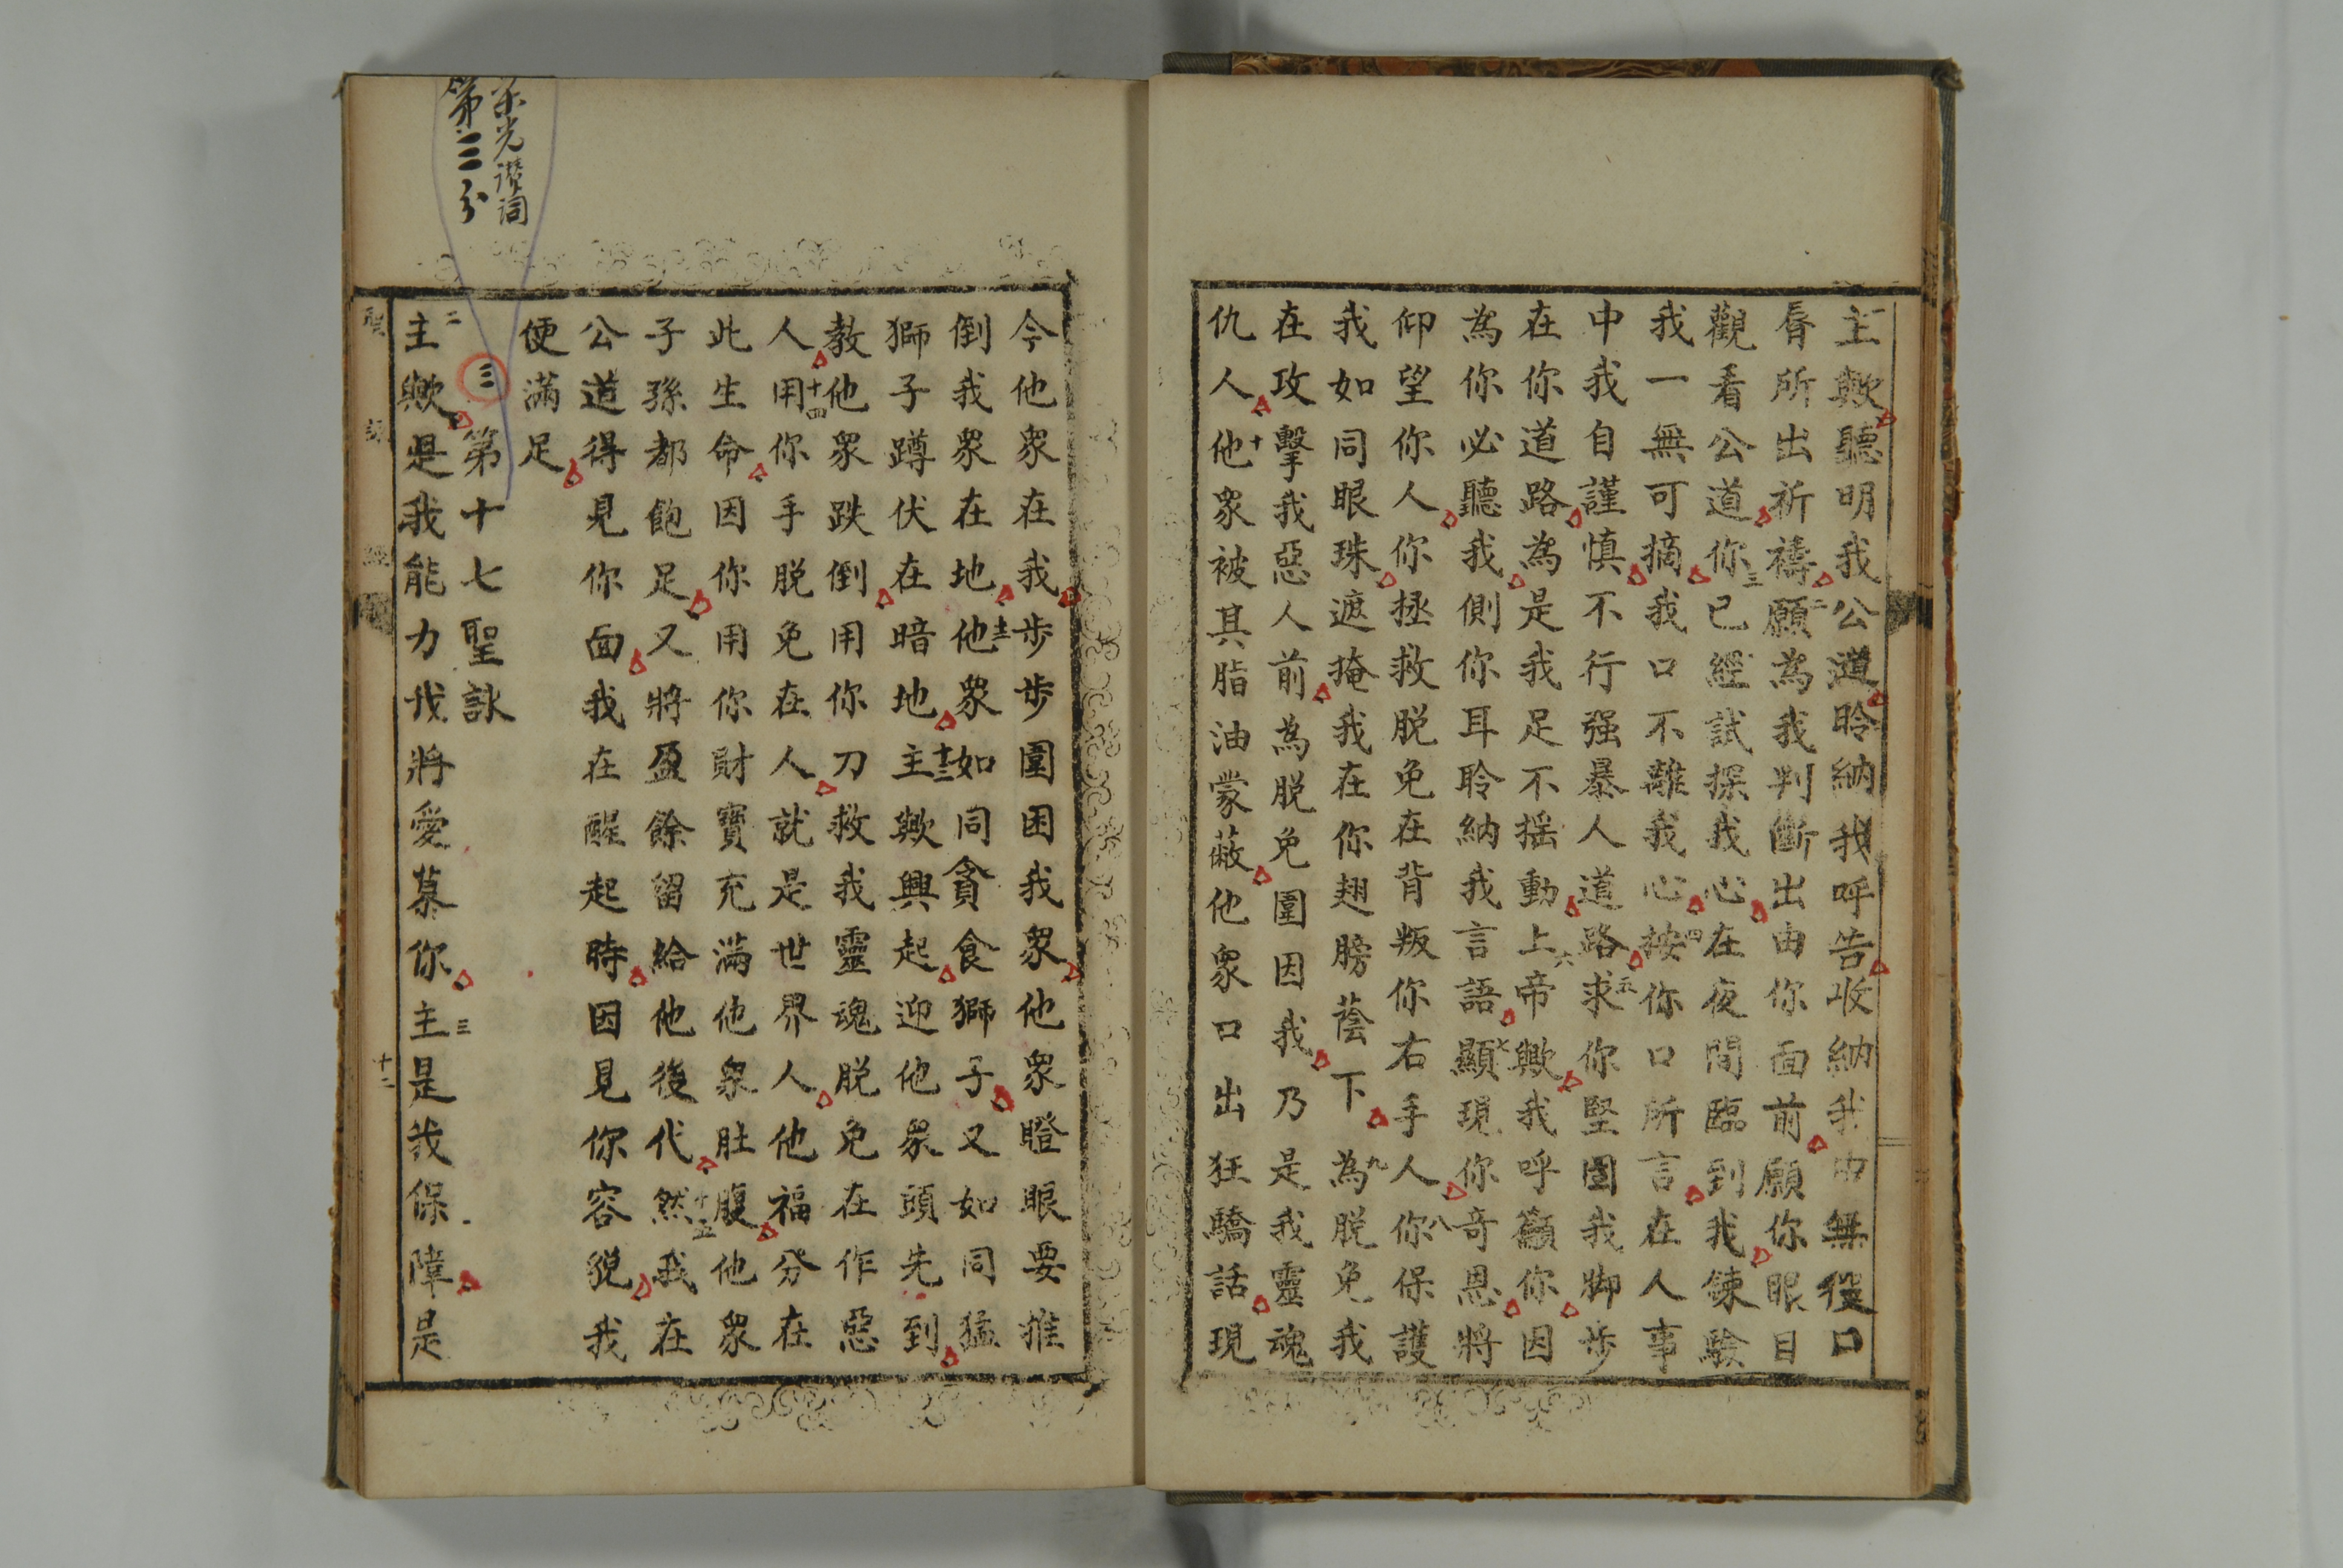 主歟聽明我公道聆納我呼告收納我由無役口
唇所出祈禱二願為我判斷出由你面前願你眼目
觀看公道三你已經試探我心在夜間臨到我鍊驗
我一無可摘我口不離我心四按你口所言在人事
中我自謹慎不行强暴人道路五求你堅固我脚步
在你道路為是我足不搖動六上帝歟我呼籲你因
為你必聽我側你耳聆納我言語七顯現你奇恩將
仰望你人你拯救脫免在背叛你右手人八你保護
我如同眼珠遮掩我在你翅膀蔭下九為脫免我
在攻擊我惡人前為脫免圍因我乃是我靈魂
仇人十他衆被其脂油蒙蔽他衆口出狂驕話現
今他衆在我步步圍困我衆他衆瞪眼要推
倒我衆在地十二他衆如同貪食獅子又如同猛
獅子蹲伏在暗地十三主歟興起迎他衆頭先到
教他衆跌倒用你刀救我靈魂脫免在作惡
人十四用你手脫免在人就是世界人他福分在
此生命因你用你財寶充滿他衆肚腹他衆
子孫都飽足又將盈餘留給他後代十五然我在
公道得見你面我在醒起時因見你容貌我
便滿足
榮光讚詞
第三分
三
第十七聖詠
二主歟是我能力我將愛慕你三主是我保障是
聖詠經
十二